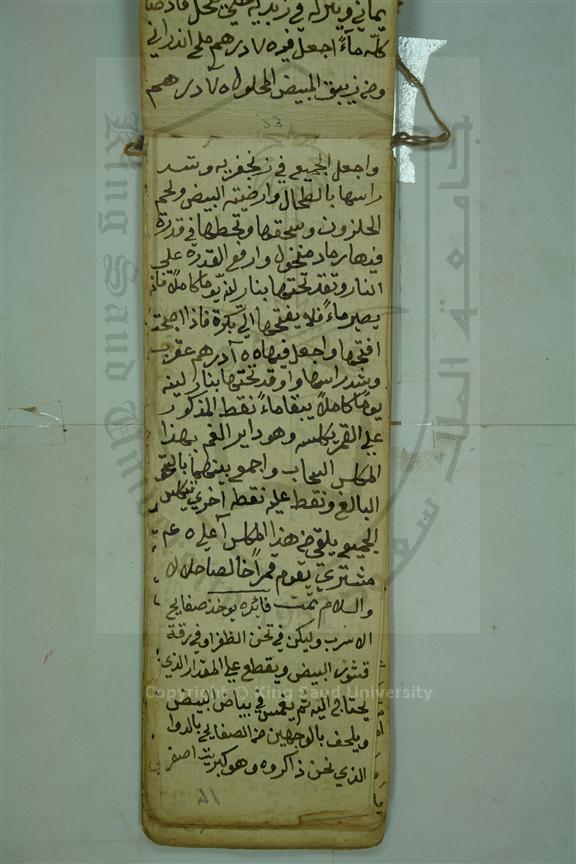 يماني وينزله في زبدية حتي ينحل فاذا صا
كله ماءً اجعل فيه ٧ درهم ملح اندراني
ومن زيبق المبيض المحلول ٥ ٧ درهم
واجعل الجميع في زنجفريه وشد
راسها بالطحال وارضيته البيض ولحم
الحلزون وسحقها وتحطها في قدرة
فيها رماد منخول وارفع القدرة علي
النار وتقد تحتها بنار لينه يوما كاملاً فانه
يصير ماءً فلا يفتحها الي بكرة فاذا اصبحت
افتحها واجعل فيها درهم عقرب
وشد راسها واوقد تحتها بنار لينه
يومًا كاملاً يبقا ماءً نقط المذكور
علي القمر يكلسه وهو داير الفم بهذا
المكلس السحاب واجمع بينهما بالسحق
البالغ ونقط عليه نقطه اخري يتكلس
الجميع يلقي من هذا المكلس ١ علي ٥ عم
مشتري يقوم قمراً خالصا حلالا
والسلام تمت فائده يوخذ صفايح
الاسرب وليكن في تخن الظفر او في رقة
قشور البيض ويقطع علي المقدار الذي
يحتاج اليه ثم يغمس في بياض البيض
ويلحف بالوجهين من الصفايح بالدوا
الذي نحن ذاكروه وهو كبريت اصفر
Copyright © King Saud University